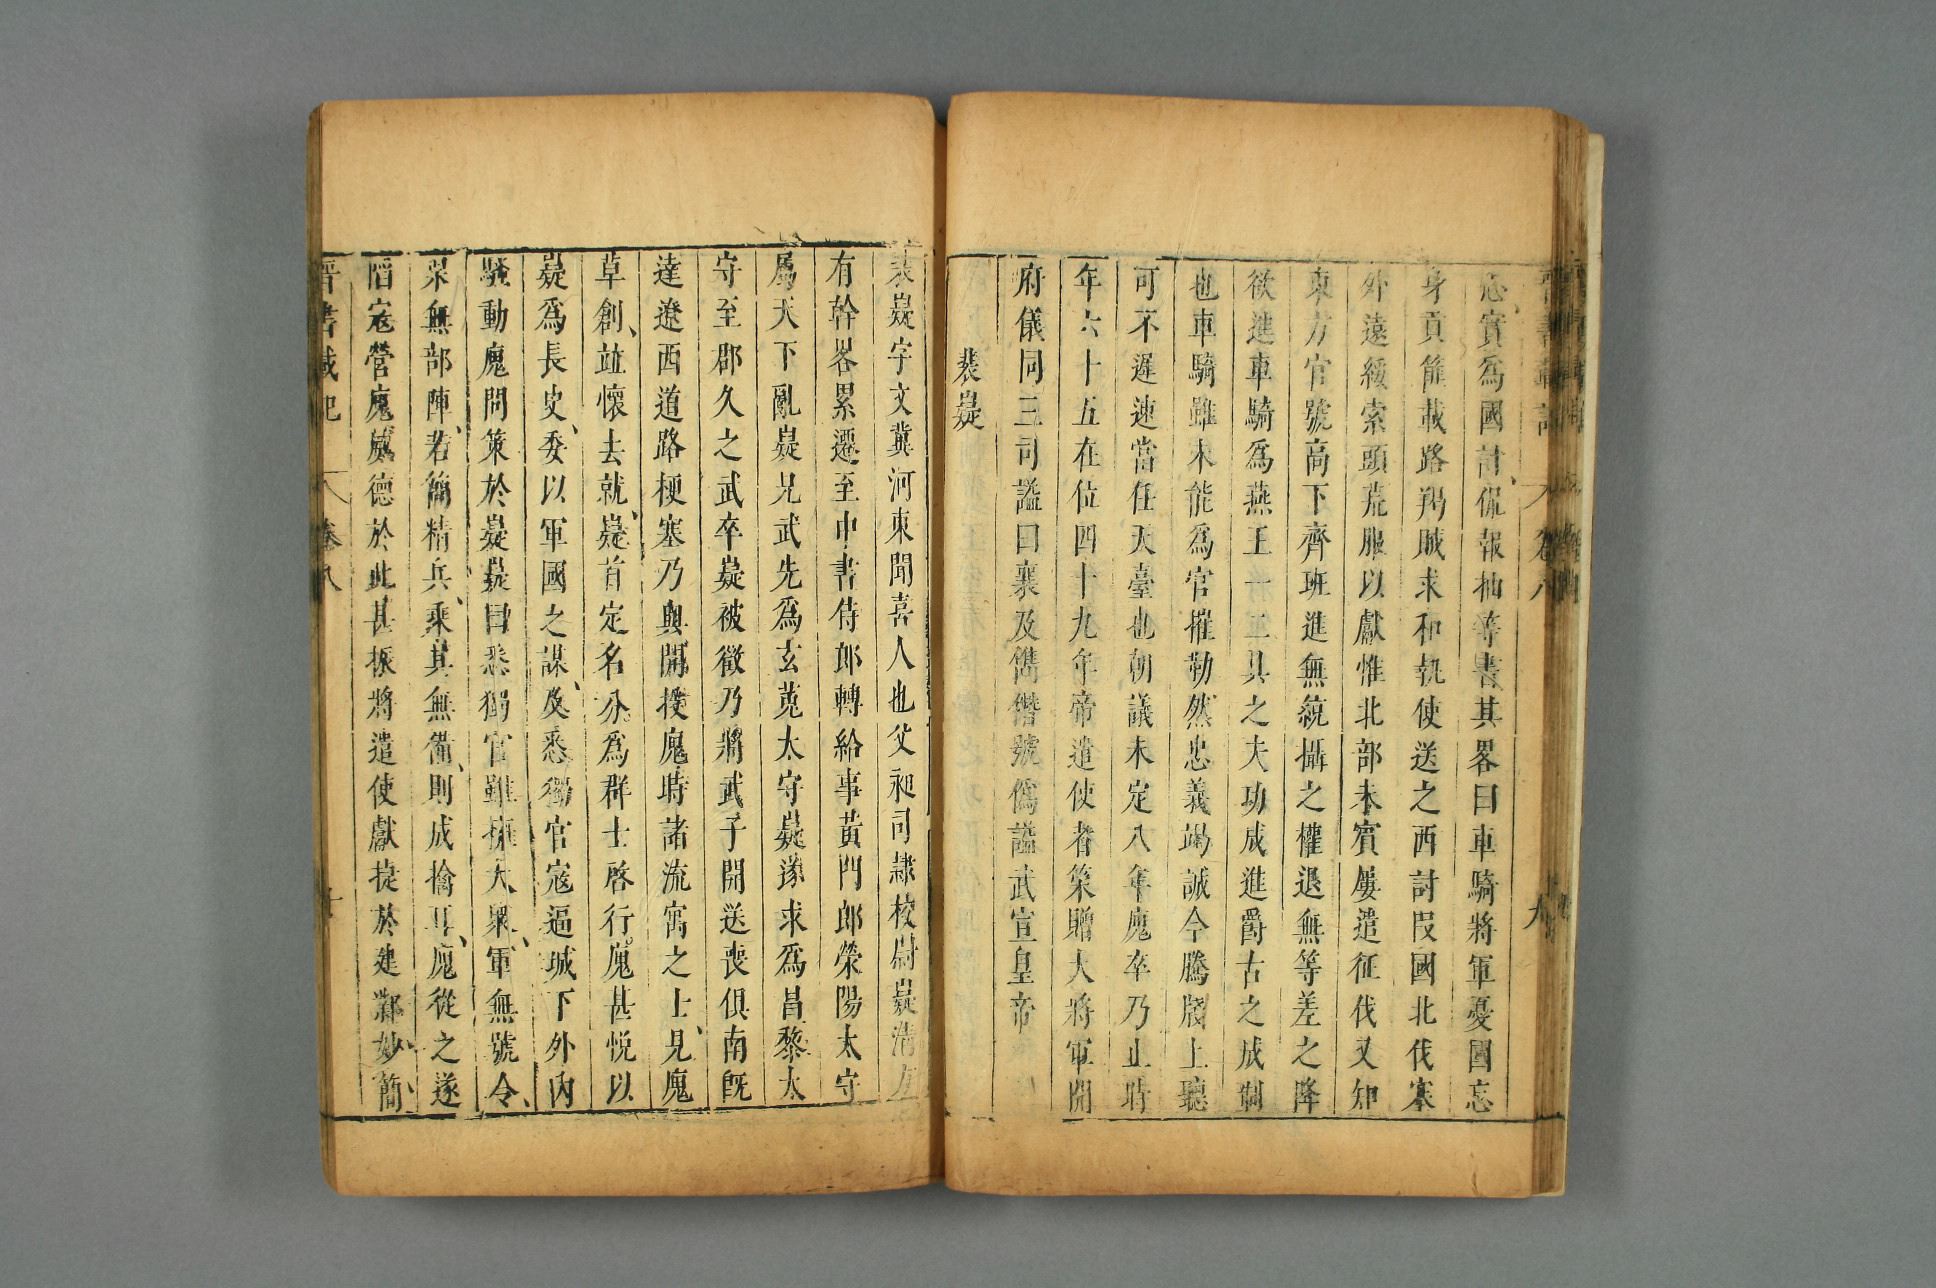 晉書載記 卷八 九
忘實爲國計侃報抽等書其畧曰車騎將軍憂國忘
身貢篚載路羯賊求和執使送之西討叚國北伐塞
外遠綏索頭荒服以獻惟北部未賓屢遣征伐又知
東方官號高下齊班進無統攝之權退無等差之降
欲進車騎爲燕王一二具之夫功成進爵古之成制
也車騎雖未能爲官摧勒然忠義竭誠今騰牋上聽
可不遲速當任天臺也朝議未定八年廆卒乃止時
年六十五在位四十九年帝遣使者策贈大將軍開
府儀同三司謚曰襄及儁僭號僞謚武宣皇帝
裴嶷
裴嶷字文冀河東聞喜人也父昶司隷校尉嶷清方
有幹畧累遷至中書侍郎轉給事黃門郎榮陽太守
屬天下亂嶷兄武先爲玄菟太守嶷遂求爲昌黎太
守至郡久之武卒嶷被徵乃將武子開送喪俱南旣
達遼西道路梗塞乃與開投廆時諸流寓之士見廆
草創、竝懷去就、嶷首定名分。爲群士啓行。廆甚悅以
嶷爲長史、委以軍國之謀、及悉獨官寇逼城下外內
騷動廆問策於嶷嶷曰悉獨官雖擁大衆、軍無號令、
衆無部陣、若簡精兵、乘其無備、則成擒耳、廆從之遂
䧟寇營廆威德於此甚振將遣使獻捷於建鄴妙簡
晉書載記 卷八 十